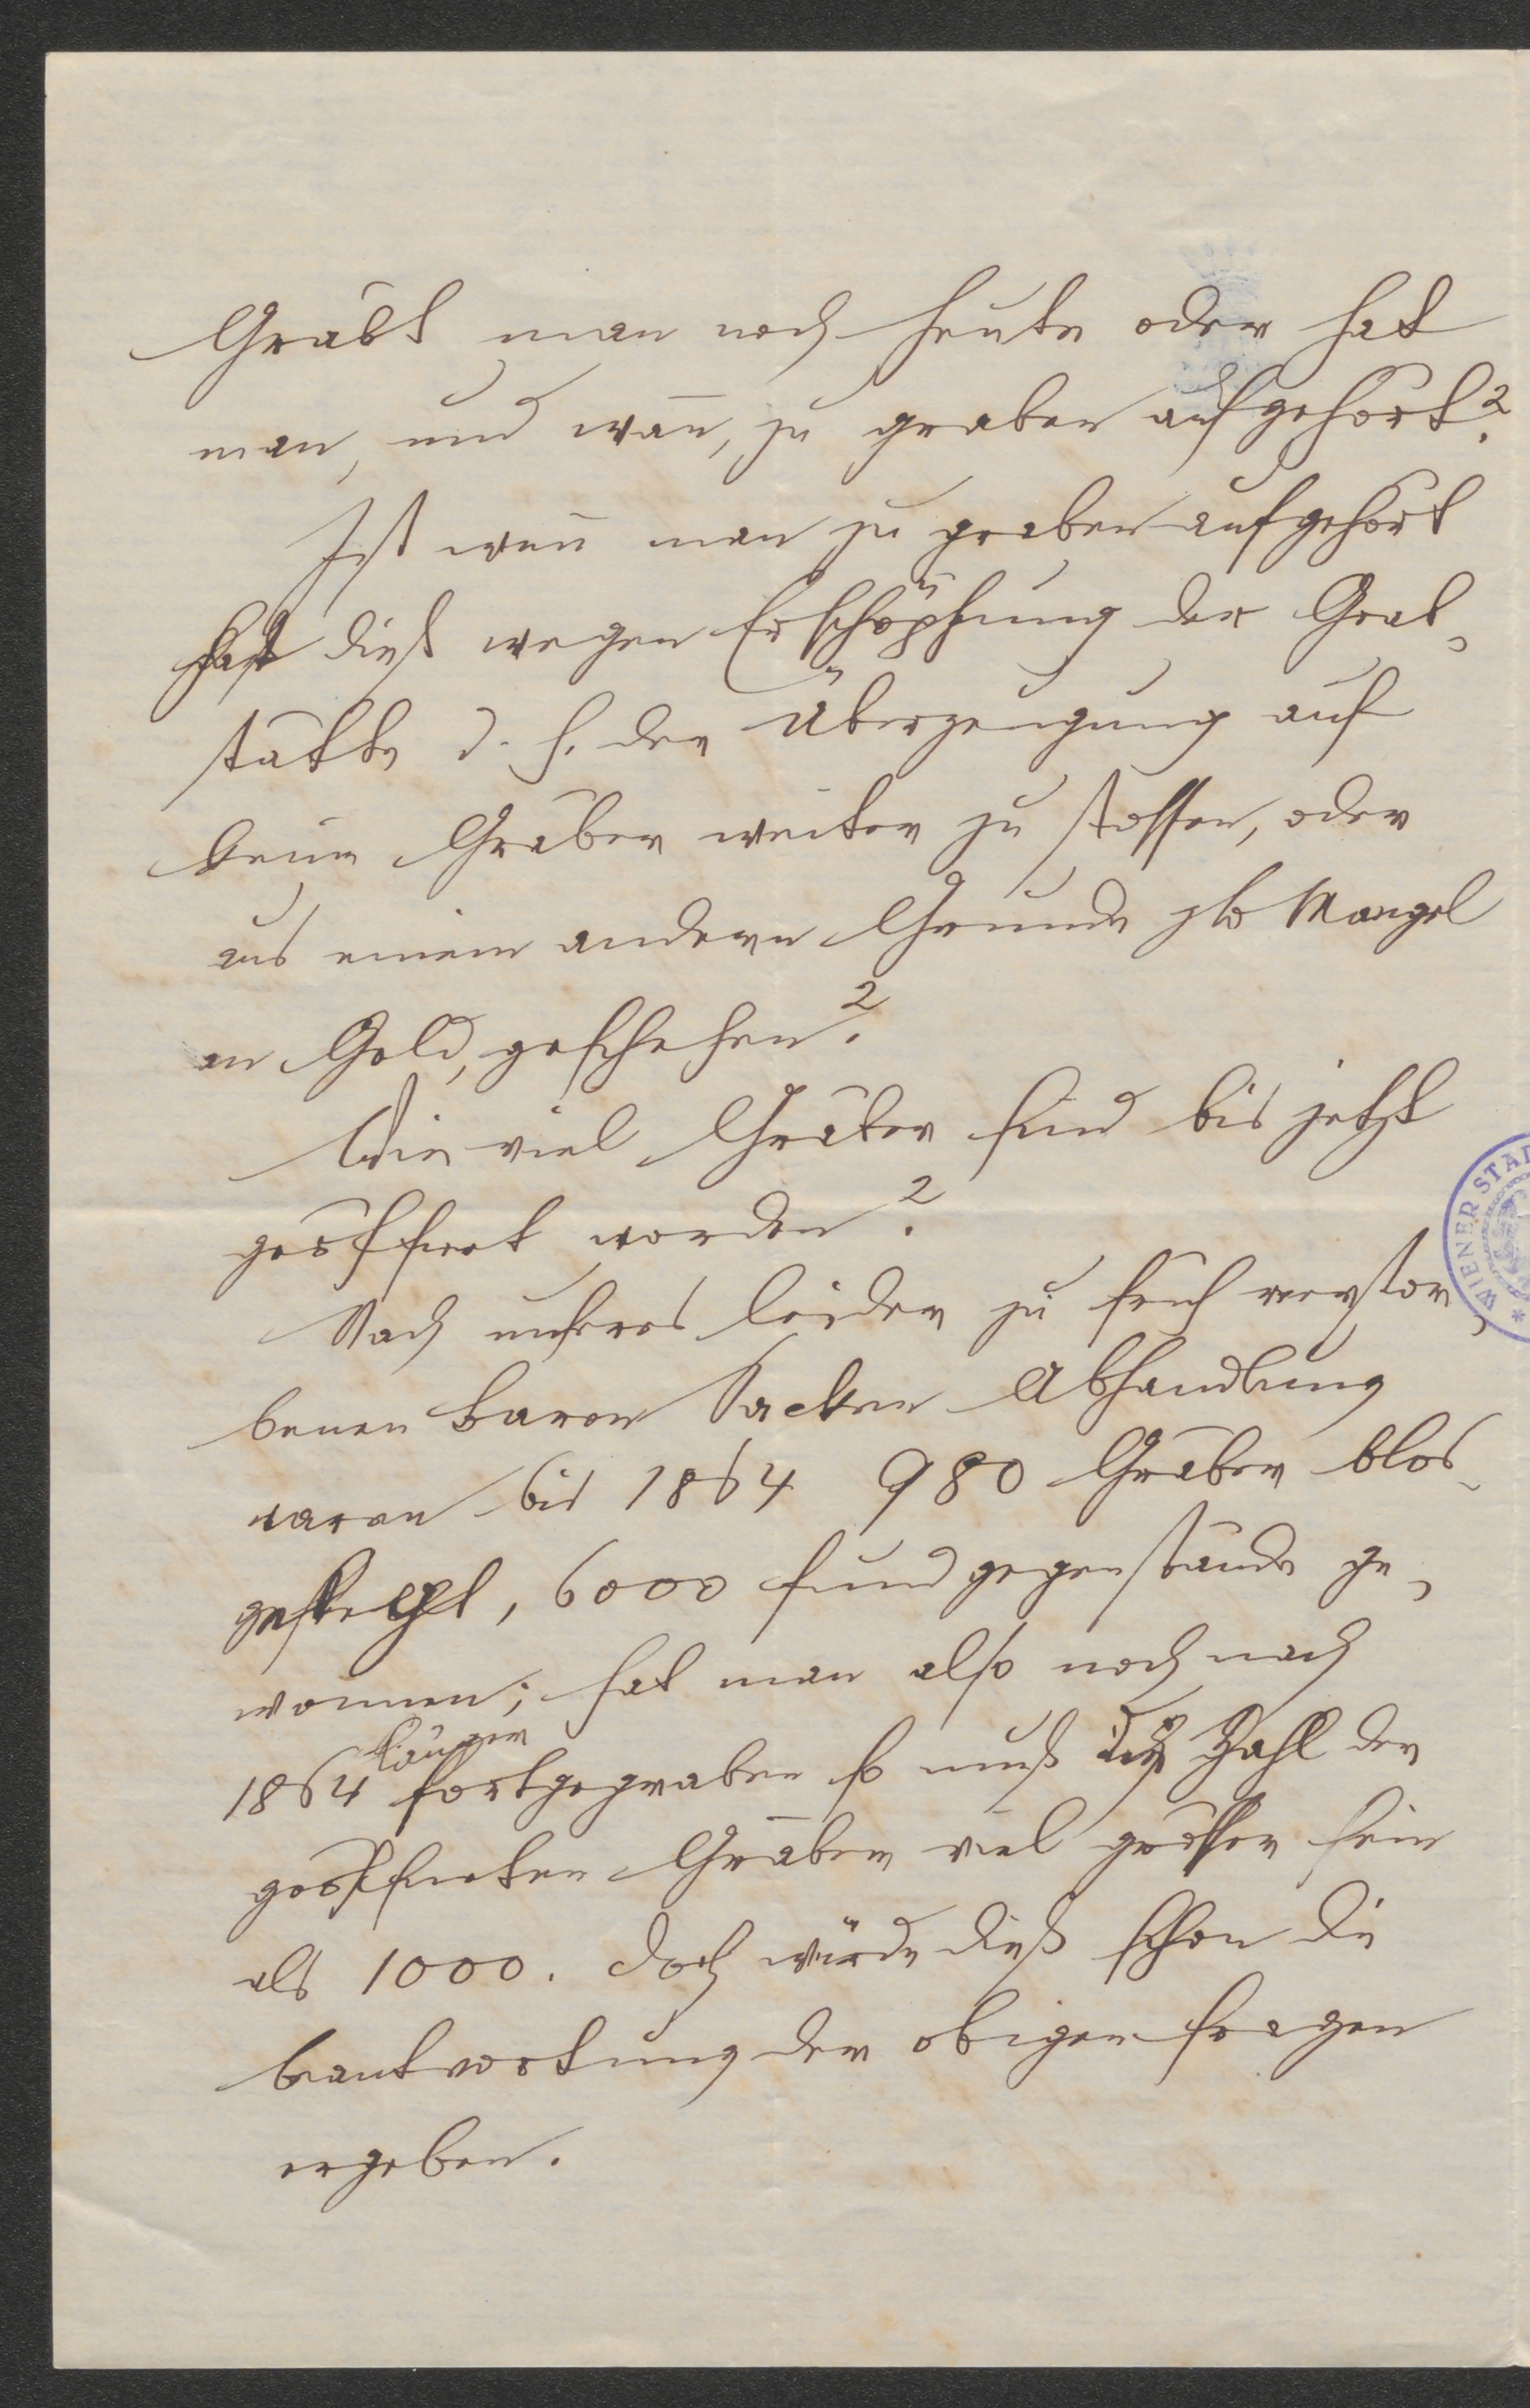 Gräbt man noch heute oder hat
man, und wan̄, zu graben aufgehört?
Ist wen̄ man zu graben aufgehört
hat dieß wegen Erschöpfung der Grab-
stätte d. h. der Überzeugung auf
keine Gräber weiter zu stossen, oder
aus einem andern Grunde zb Mangel
an Geld, geschehen?
Wie viel Gräber sind bis jetzt
geöffnet worden?
Nach unseres leider zu früh verstor-
benen Baron Sacken Abhandlung
waren bis 1864 980 Gräber blos-
gelegt, 6000 Fundgegenstände ge-
wonnen; hat man also noch nach
länger
1864 fortgegraben so muß die Zahl der
geöffneten Gräber viel größer sein
als 1000. Doch würde dieß schon die
Beantwortung der obigen Fragen
ergeben.
WIENER STAD